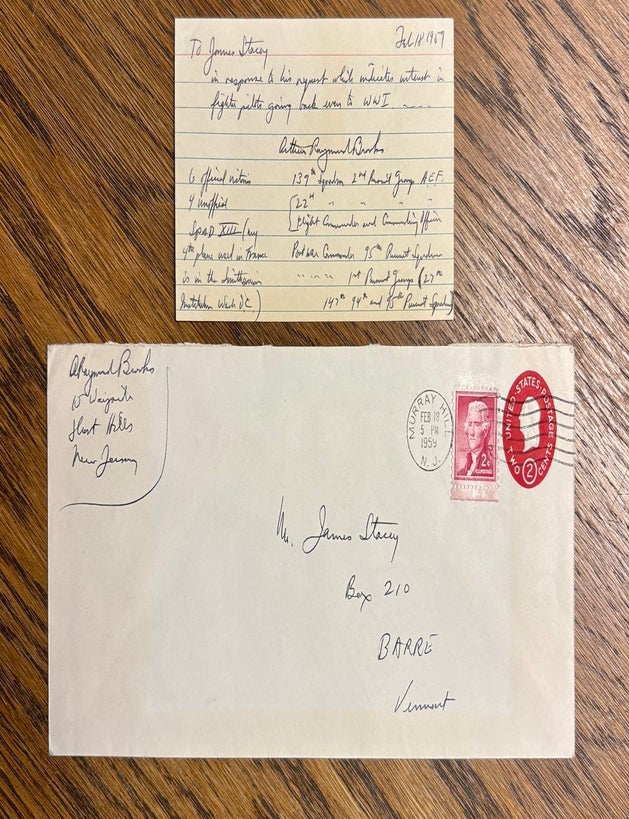 Feb 18 1959
To James Stacey
in response to his request which indicates interest in
fighter pilots going back even to WWI.....
Arthur Raymond Brooks
6 official victories 139th Squadron 2nd Pursuit Group A.E.F.
4 unofficial [22nd " " " "
Spad XIII (my Flight Commander and Commanding Officer
4th plane used in France Post War Commander 95th Pursuit Squadron
is in the Smithsonian " " " 1st Pursuit Group (27th
Institution Wash D.C.) 147th 94th and 95th Pursuit Squadrons)
A Raymond Brooks
Short Hills
New Jersey
MURRAY HILL
FEB 18
5 PM
1959
N. J.
2¢
U.S. POSTAGE
UNITED STATES POSTAGE
TWO 2 CENTS
Mr. James Stacey
Box 210
BARRE
Vermont